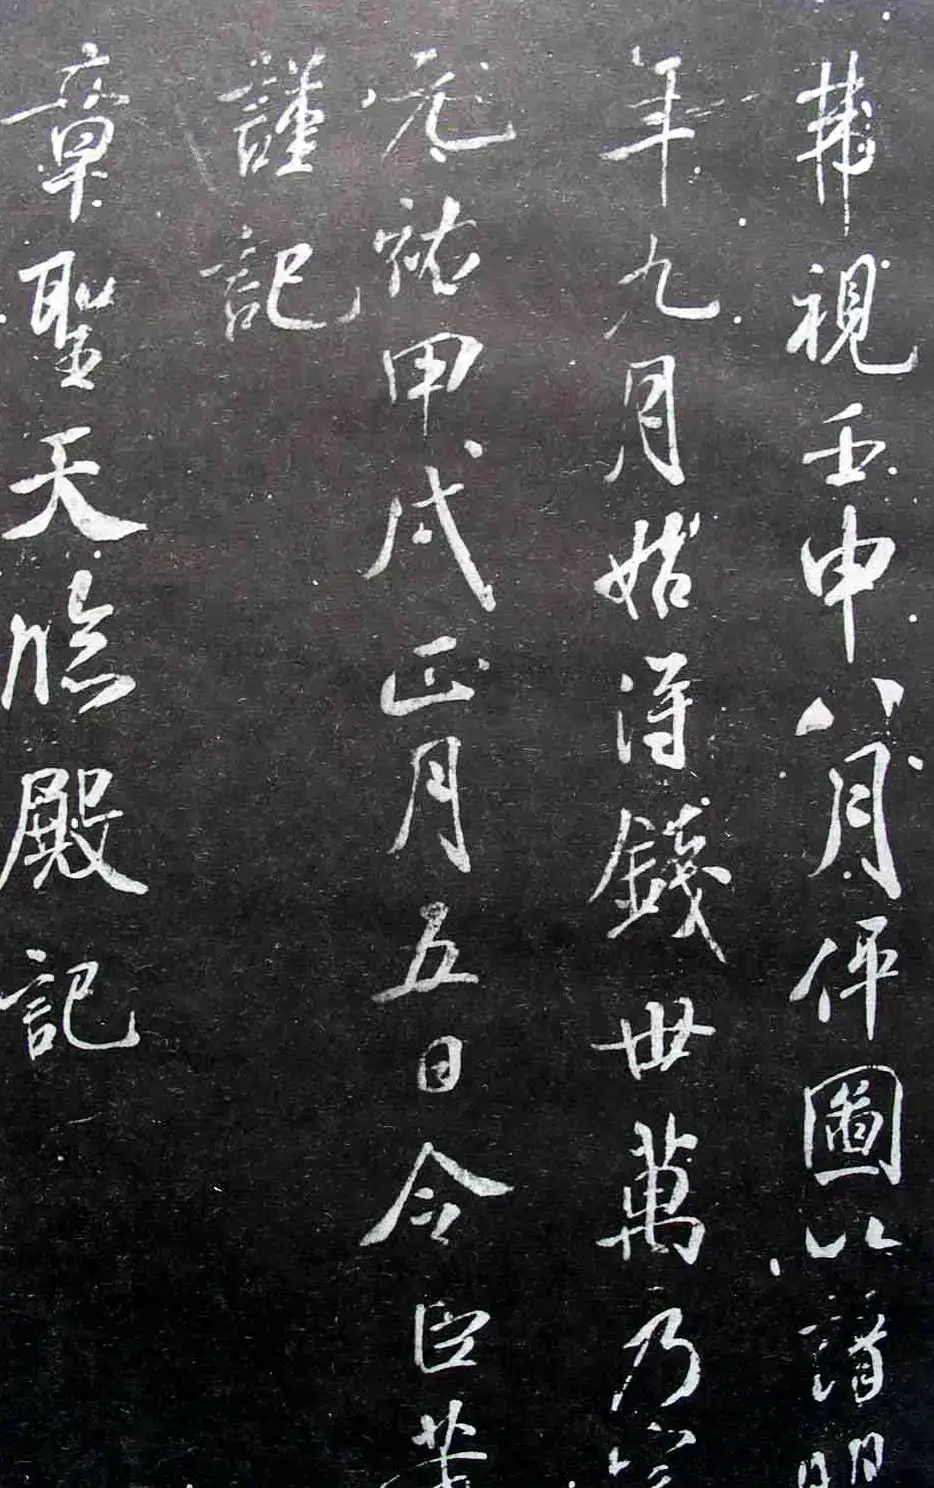 芾視壬申八月伻圖以請明
年九月始得錢卌萬乃完
元祐甲戌正月五日令臣芾
謹記
章聖天臨殿記